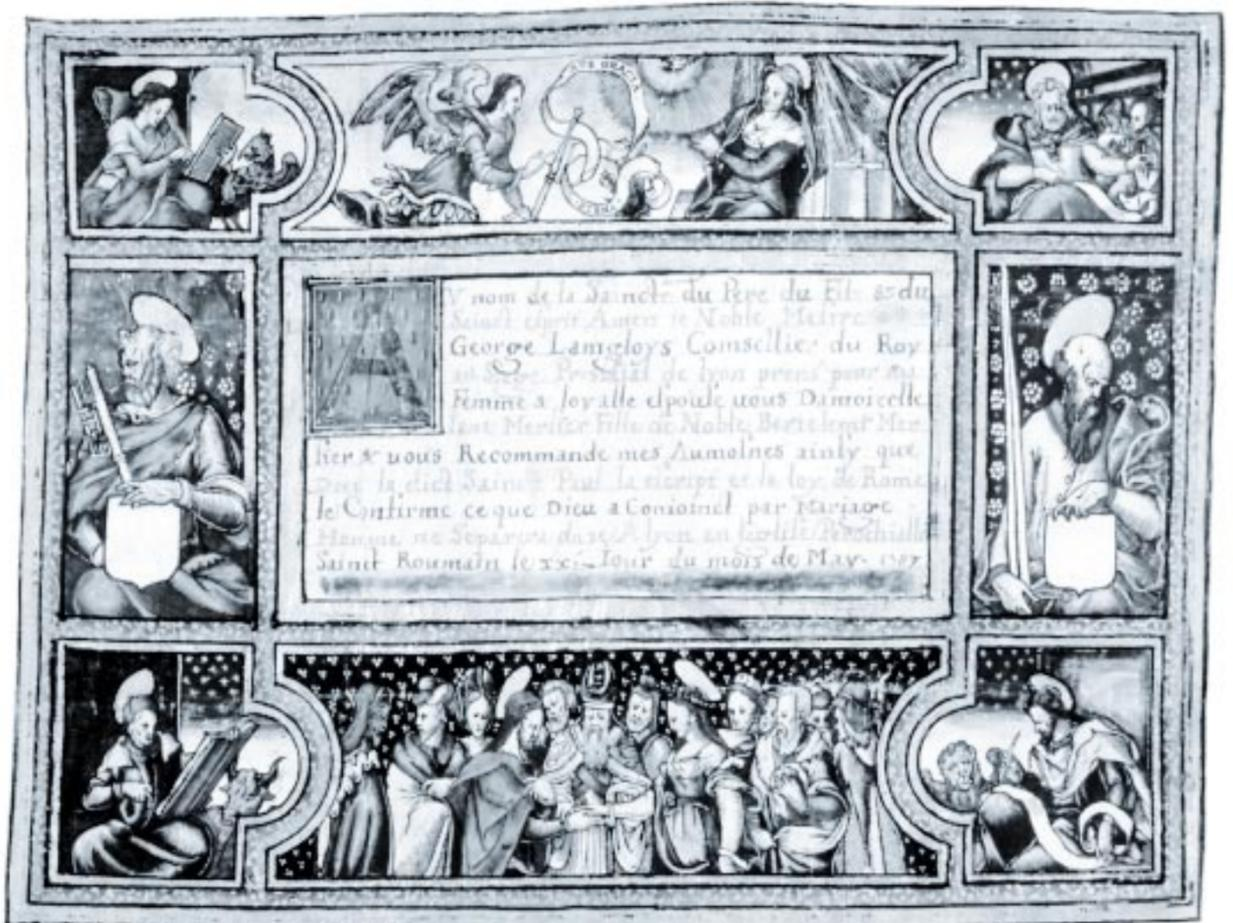 AVE GRACIA
A
V nom de la Saincte du Pere du Filz & du
Sainct esprit Amen ie Noble Meitre
George Lamgloys Comsellier du Roy
au Siege Presidial de lyon prens pour ma
Femme & loyalle espouse uous Damoiselle
Mersier Fille de Noble Bertelemy Mer
sier & uous Recommande mes Aumolnes ainsy que
Dieu la dict Sainct Paul la escript et la loy de Rome
le Confirme ce que Dieu a Comioinct par Mariage
Homme ne Separera A lyon en Parochialle
Sainct Roumain le xxi Iour du mois de May